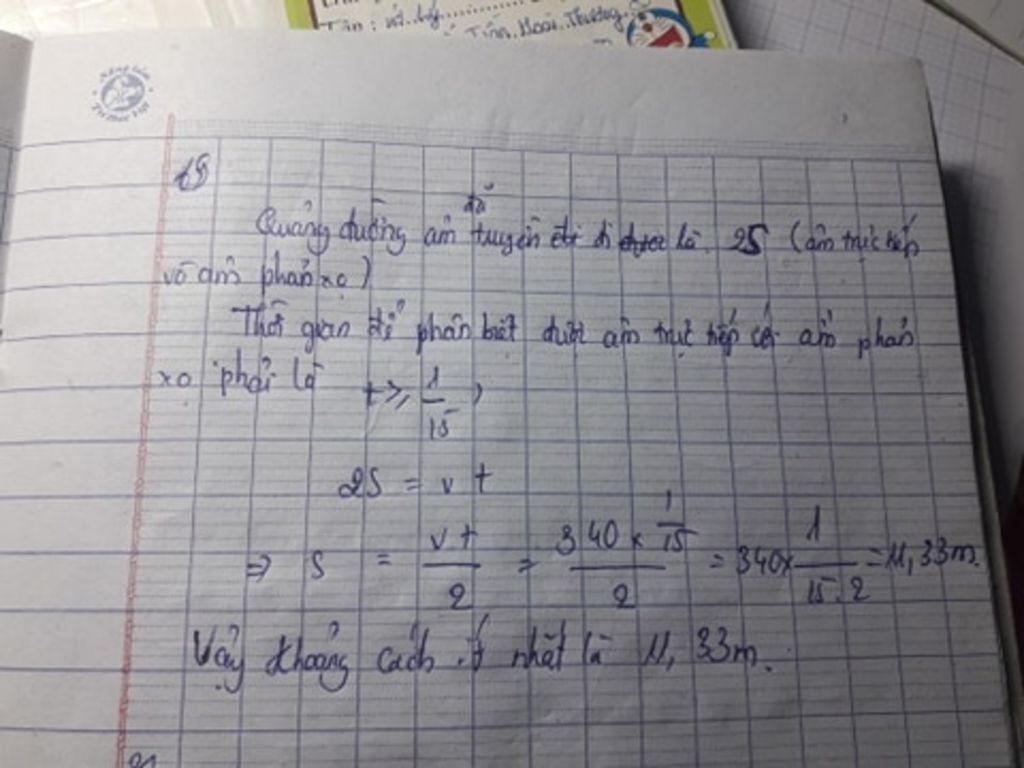 Tên: vật lý
Tiến, Hoài Thương
19
để
Quảng đường âm truyền đi đi được là 2S (âm trực tiếp
và âm phản xạ)
Thời gian để phân biệt được âm trực tiếp với âm phản
xạ phải là t ≥ 1/15
2S = v t
⇒ S = vt/2 = 340 × 1/15 / 2 = 340 × 1/15.2 = 11,33m.
Vậy khoảng cách ít nhất là 11,33m.